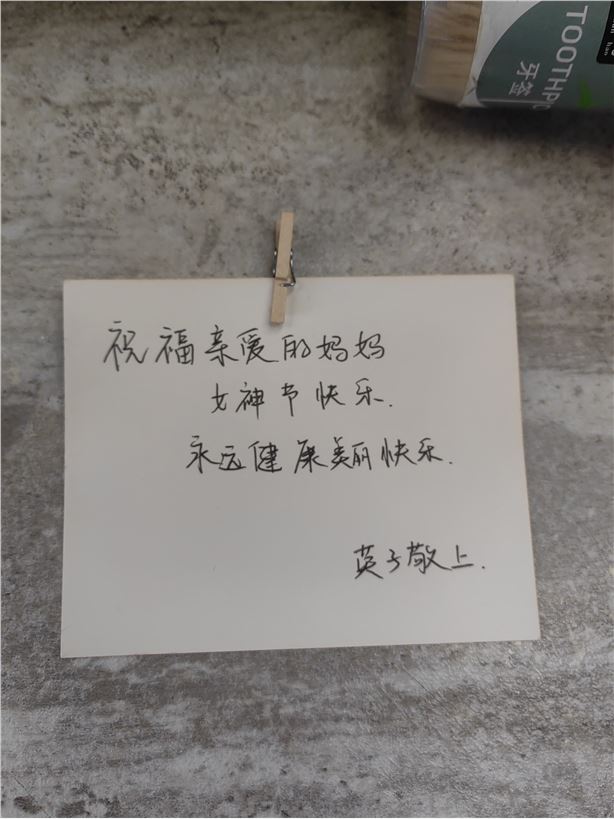 TOOTHPIC
牙签
祝福亲爱的妈妈
女神节快乐.
永远健康美丽快乐.
英子敬上.